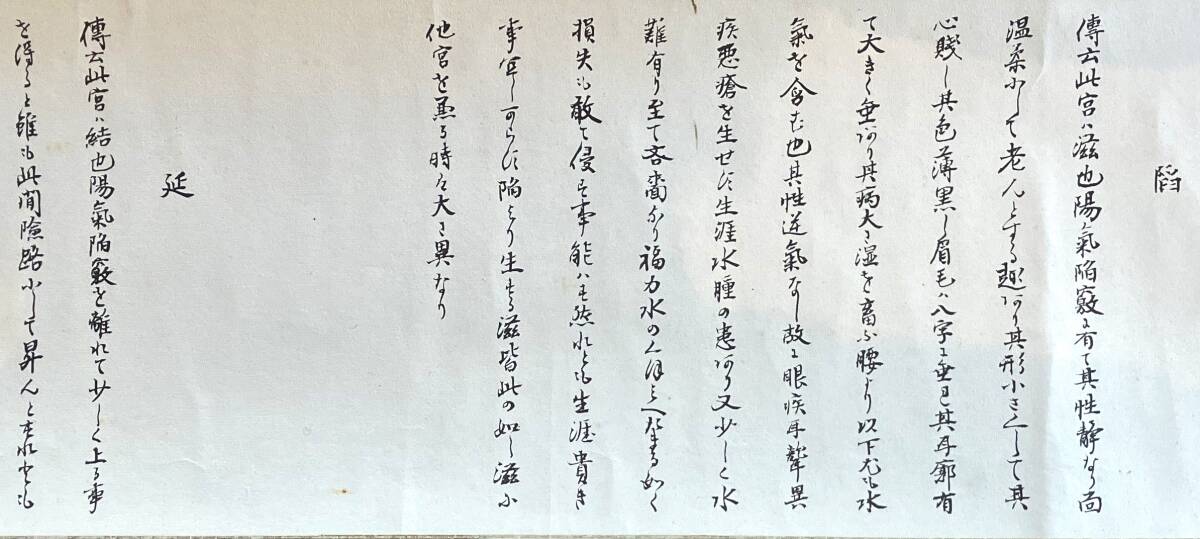 䧟
傳云此宮ハ滋也陽氣陥竅ニ有て其性静なり面
温柔にして老んとする趣あり其形小さくして其
心賤し其色薄黒し眉毛ハ八字ニ垂る其耳廓有
て大きく垂あり其病大に湿を畜ふ腰より以下尤も水
氣を含む也其性逆氣なし故ニ眼疾耳聾異
疾悪瘡を生せす生涯水腫の患あり又少しく水
難有り至て吝嗇なり福力水の
損失も敢て侵す事能ハす然れとも生涯貴き
事罕し可らす陥より生する滋皆此の如し滋に
他宮を兼る時ハ大に異なり
延
傳云此宮ハ結也陽氣陥竅を離れて少しく上る事
を得ると雖も此間險路にして昇んとすれとも